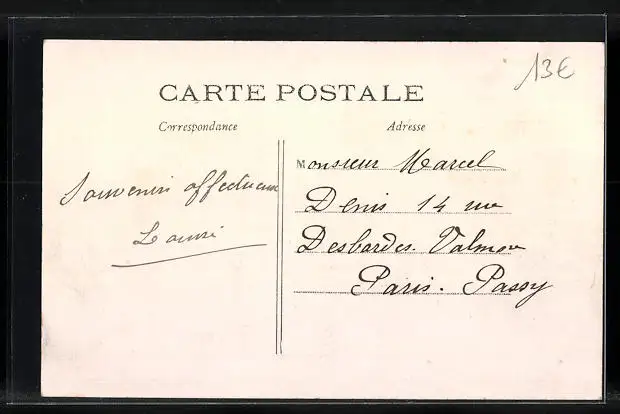 13€
CARTE POSTALE
Correspondance
Adresse
Souvenir affectueux
Monsieur Marcel
Denis 14 rue
Desbordes. Valmore
Paris. Passy